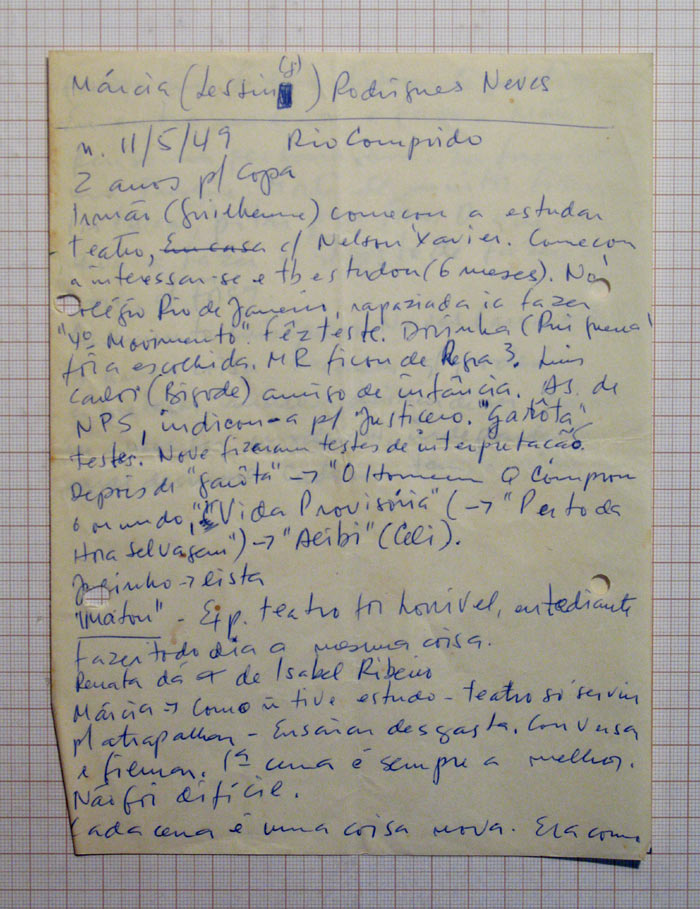 Márcia (Lessin (g)) Rodrigues Neves
n. 11/5/49 Rio Comprido
2 anos p/ Copa
Irmão (Guilherme) começou a estudar
teatro, Em casa c/ Nelson Xavier. Começou
a interessar-se e tb estudou (6 meses). No
Colégio Rio de Janeiro, rapaziada ia fazer
"4º Movimento". Fêz teste. Dorinha (Rui Guerra)
fôra escolhida. MR ficou de Regra 3. Luis
Carlos (Bigode) amigo de infância. As. de
NPS, indicou-a p/ Justicero. "Garôta"
testes. Nove fizeram testes de interpretação.
Depois de "garôta" → "O Homem Q Comprou
o mundo," "Vida Provisória" (→ "Perto da
Hora Selvagem") → (Celi).
→ lista
- Exp. teatro foi horrível, entediante
fazer todo dia a mesma coisa.
Renata dá de Isabel Ribeiro
Márcia → Como ñ tive estudo - teatro só serviu
p/ atrapalhar - Ensaiar desgasta. Conversa
e filmar. 1ª cena é sempre a melhor.
Não foi difícil.
Cada cena é uma coisa nova. Era como